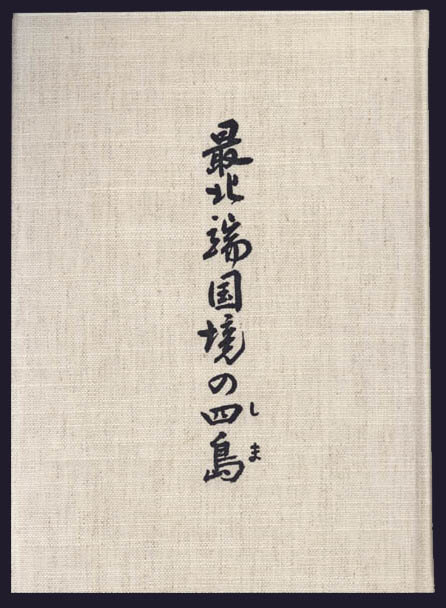 最北端国境の四島
しま